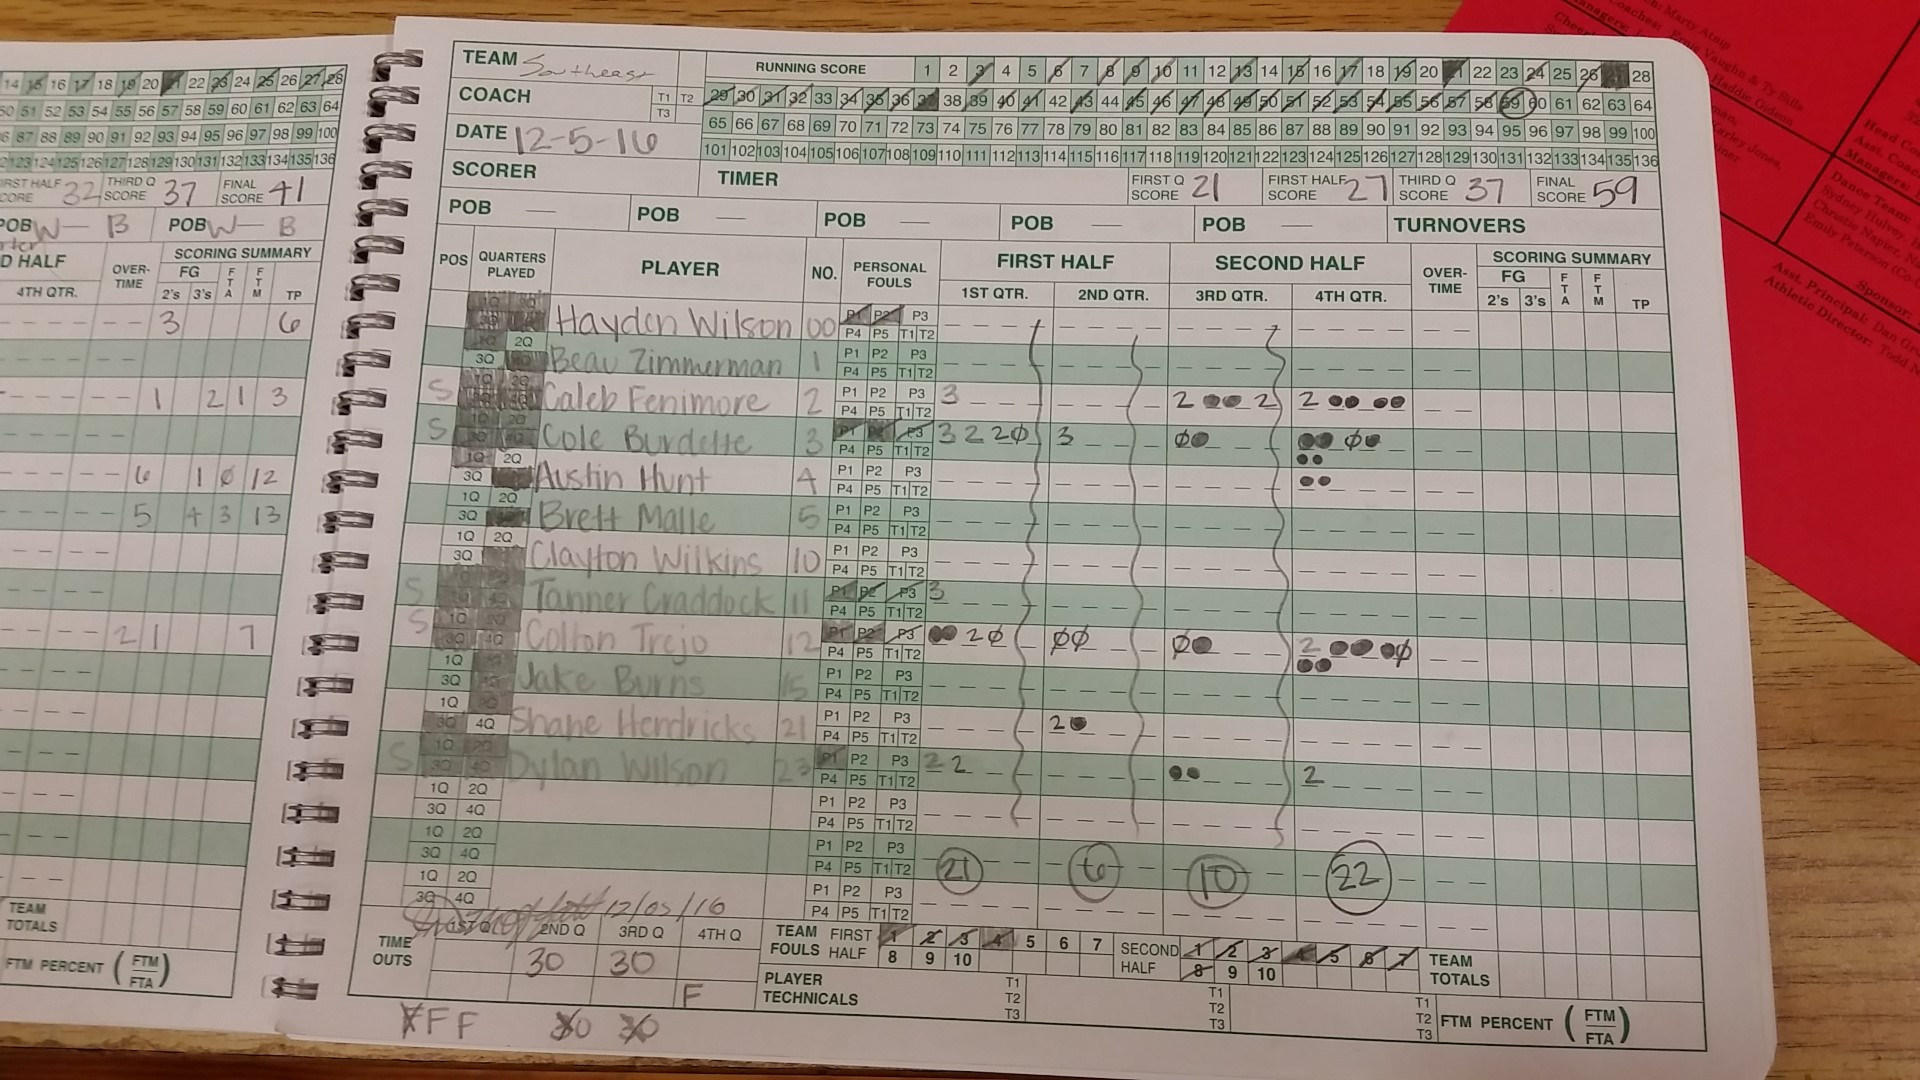 14 15 16 17 18 19 20 21 22 23 24 25 26 27 28
50 51 52 53 54 55 56 57 58 59 60 61 62 63 64
86 87 88 89 90 91 92 93 94 95 96 97 98 99 100
123 124 125 126 127 128 129 130 131 132 133 134 135 136
32 THIRD Q SCORE 37 FINAL SCORE 41
POB W - B POB W - B
SCORING SUMMARY
4TH QTR. OVER-TIME FG 2's 3's FTA FTM TP
3 6
1 2 1 3
6 1 0 12
5 4 3 13
2 1 7
TEAM TOTALS
FTM PERCENT (FTM/FTA)
TEAM Southeast
RUNNING SCORE 1 2 3 4 5 6 7 8 9 10 11 12 13 14 15 16 17 18 19 20 21 22 23 24 25 26 27 28
COACH T1 T2 T3
29 30 31 32 33 34 35 36 37 38 39 40 41 42 43 44 45 46 47 48 49 50 51 52 53 54 55 56 57 58 59 60 61 62 63 64
DATE 12-5-16
65 66 67 68 69 70 71 72 73 74 75 76 77 78 79 80 81 82 83 84 85 86 87 88 89 90 91 92 93 94 95 96 97 98 99 100
101 102 103 104 105 106 107 108 109 110 111 112 113 114 115 116 117 118 119 120 121 122 123 124 125 126 127 128 129 130 131 132 133 134 135 136
SCORER TIMER FIRST Q SCORE 21 FIRST HALF SCORE 27 THIRD Q SCORE 37 FINAL SCORE 59
POB POB POB POB POB TURNOVERS
POS QUARTERS PLAYED PLAYER NO. PERSONAL FOULS FIRST HALF SECOND HALF OVER-TIME SCORING SUMMARY
1ST QTR. 2ND QTR. 3RD QTR. 4TH QTR. FG 2's 3's FTA FTM TP
Hayden Wilson 00 P1 P2 P3
P4 P5 T1 T2
2Q 3Q Beau Zimmerman 1 P1 P2 P3
P4 P5 T1 T2
S Caleb Fenimore 2 P1 P2 P3 3 2 2 2
P4 P5 T1 T2
S Cole Burdette 3 P1 P2 P3 3 2 2 0 3 0 0
P4 P5 T1 T2
1Q 2Q 3Q Austin Hunt 4 P1 P2 P3
P4 P5 T1 T2
1Q 2Q 3Q Brett Malle 5 P1 P2 P3
P4 P5 T1 T2
1Q 2Q 3Q Clayton Wilkins 10 P1 P2 P3
P4 P5 T1 T2
S Tanner Craddock 11 P1 P2 P3 3
P4 P5 T1 T2
S 1Q 3Q 4Q Colton Trejo 12 P1 P2 P3 2 0 0 0 0 2 0
P4 P5 T1 T2
1Q 3Q Jake Burns 15 P1 P2 P3
P4 P5 T1 T2
1Q 3Q 4Q Shane Hendricks 21 P1 P2 P3 2
P4 P5 T1 T2
S 1Q 2Q 3Q 4Q Dylan Wilson 23 P1 P2 P3 2 2 2
P4 P5 T1 T2
1Q 2Q 3Q 4Q P1 P2 P3
P4 P5 T1 T2
1Q 2Q 3Q 4Q P1 P2 P3
P4 P5 T1 T2 21 6 10 22
1Q 2Q 3Q 4Q P1 P2 P3
P4 P5 T1 T2
12/05/16
TIME OUTS 2ND Q 3RD Q 4TH Q
30 30 F
TEAM FOULS FIRST HALF 1 2 3 4 5 6 7 8 9 10 SECOND HALF 1 2 3 4 5 6 7 8 9 10 TEAM TOTALS
PLAYER TECHNICALS T1 T2 T3 T1 T2 T3 T1 T2 T3 FTM PERCENT (FTM/FTA)
F F F 30 30
Marty Atnip
Vaughn & Ty Sills
Haddie Gideon
Karley Jones,
Dance Team:
Sydney Hulvey
Christis Napier
Emily Peterson
Sponsor:
Asst. Principal: Dan
Athletic Director: Todd